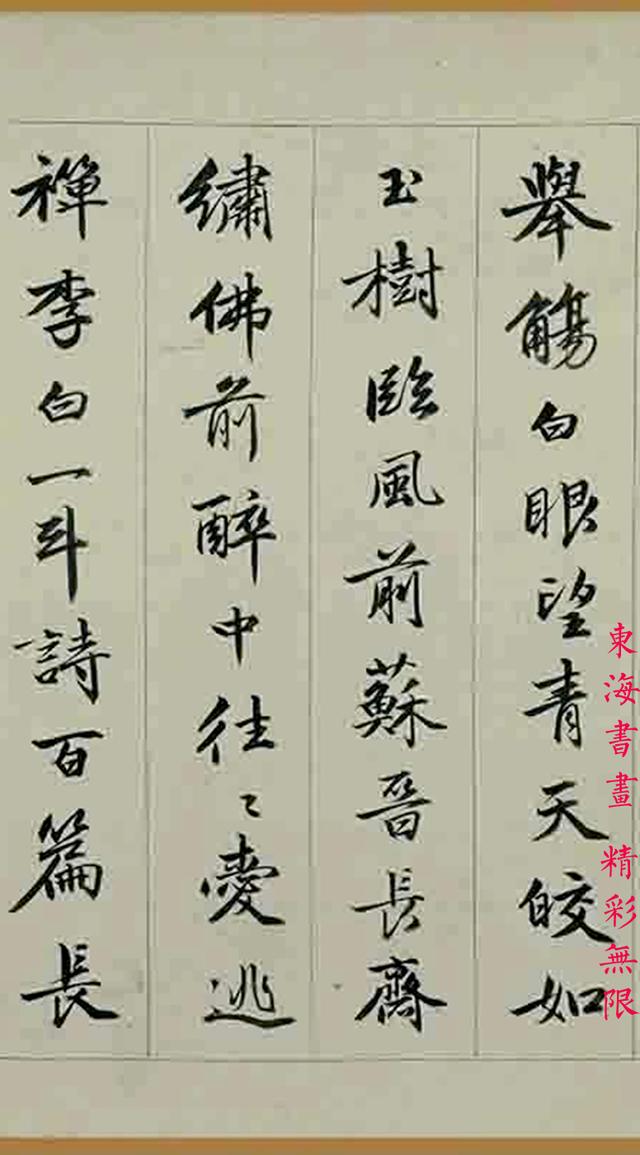 舉觴白眼望青天皎如
玉樹臨風前蘇晉長齋
繡佛前醉中往〻愛逃
禪李白一斗詩百篇長
東海書畫 精彩無限